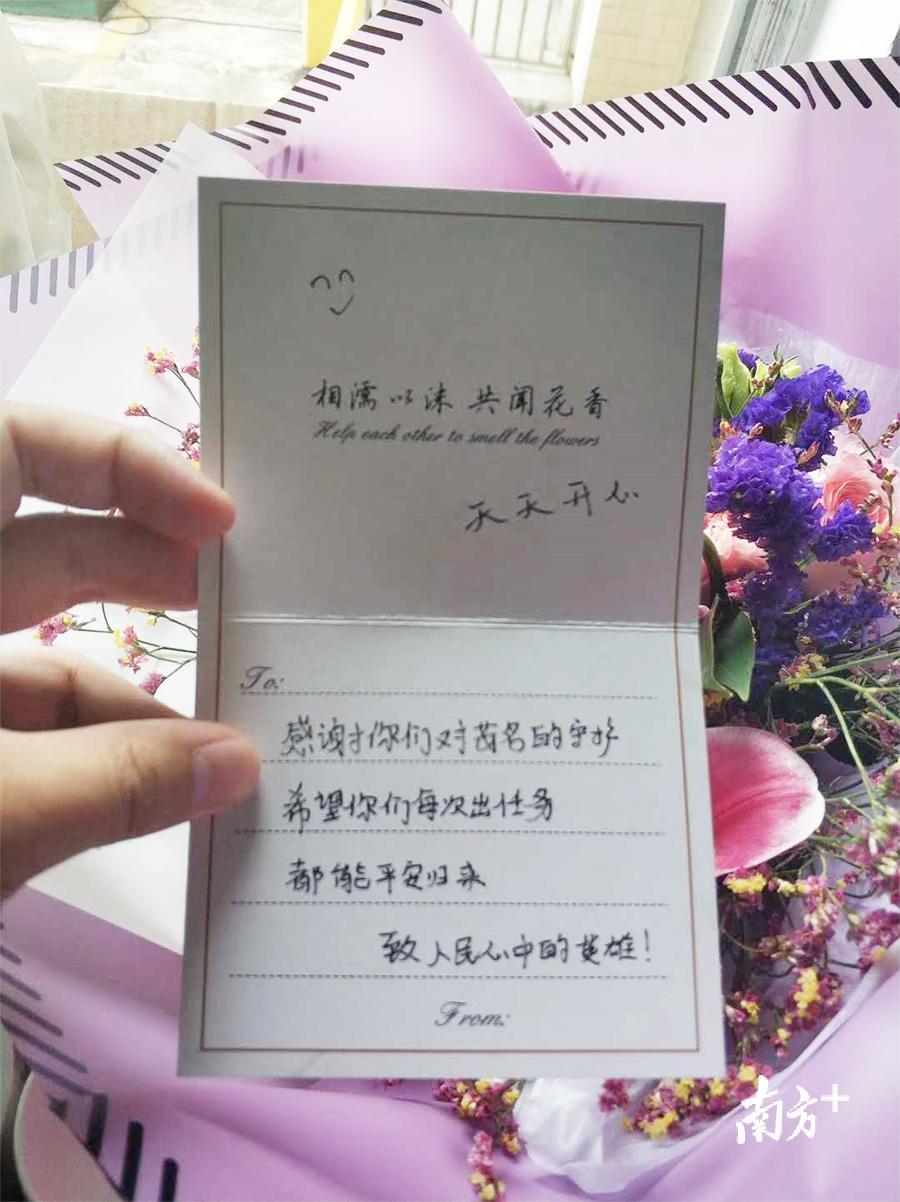 相濡以沫 共闻花香
Help each other to smell the flowers
天天开心
To:
感谢你们对茂名的守护
希望你们每次出任务
都能平安归来
致人民心中的英雄!
From:
南方+